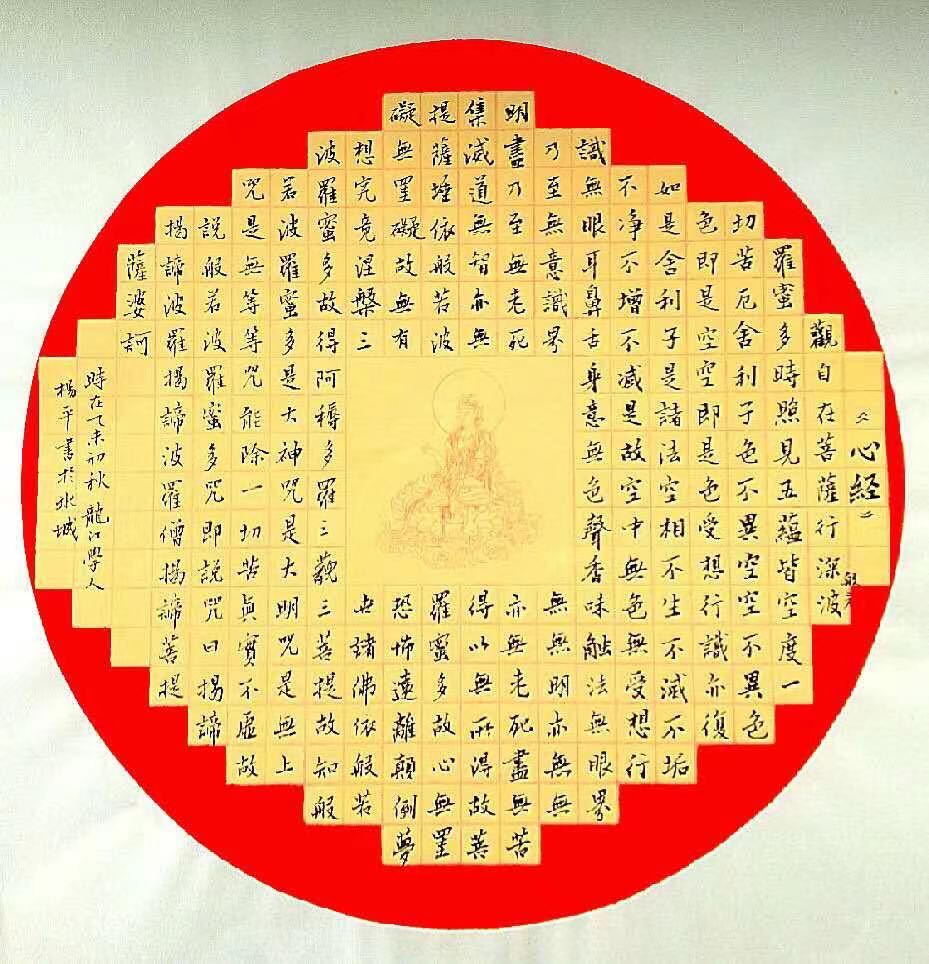 《心經》
觀自在菩薩行深波
般若
羅蜜多時照見五蘊皆空度一
切苦厄舍利子色不異空空不異色
色即是空空即是色受想行識亦復
如是舍利子是諸法空相不生不滅不垢
不净不增不减是故空中無色無受想行
識無眼耳鼻舌身意無色聲香味觸法無眼界
乃至無意識界無無明亦無無
明盡乃至無老死亦無老死盡無苦
集滅道無智亦無得以無所得故菩
提薩埵依般若波羅蜜多故心無罣
礙無罣礙故無有恐怖遠離顛倒夢
想究竟涅槃三世諸佛依般若
波羅蜜多故得阿耨多羅三藐三菩提故知般
若波羅蜜多是大神咒是大明咒是無上
咒是無等等咒能除一切苦真實不虛故
說般若波羅蜜多咒即說咒曰揭諦
揭諦波羅揭諦波羅僧揭諦菩提
薩婆訶
時在乙未初秋龍江學人
楊平書於冰城